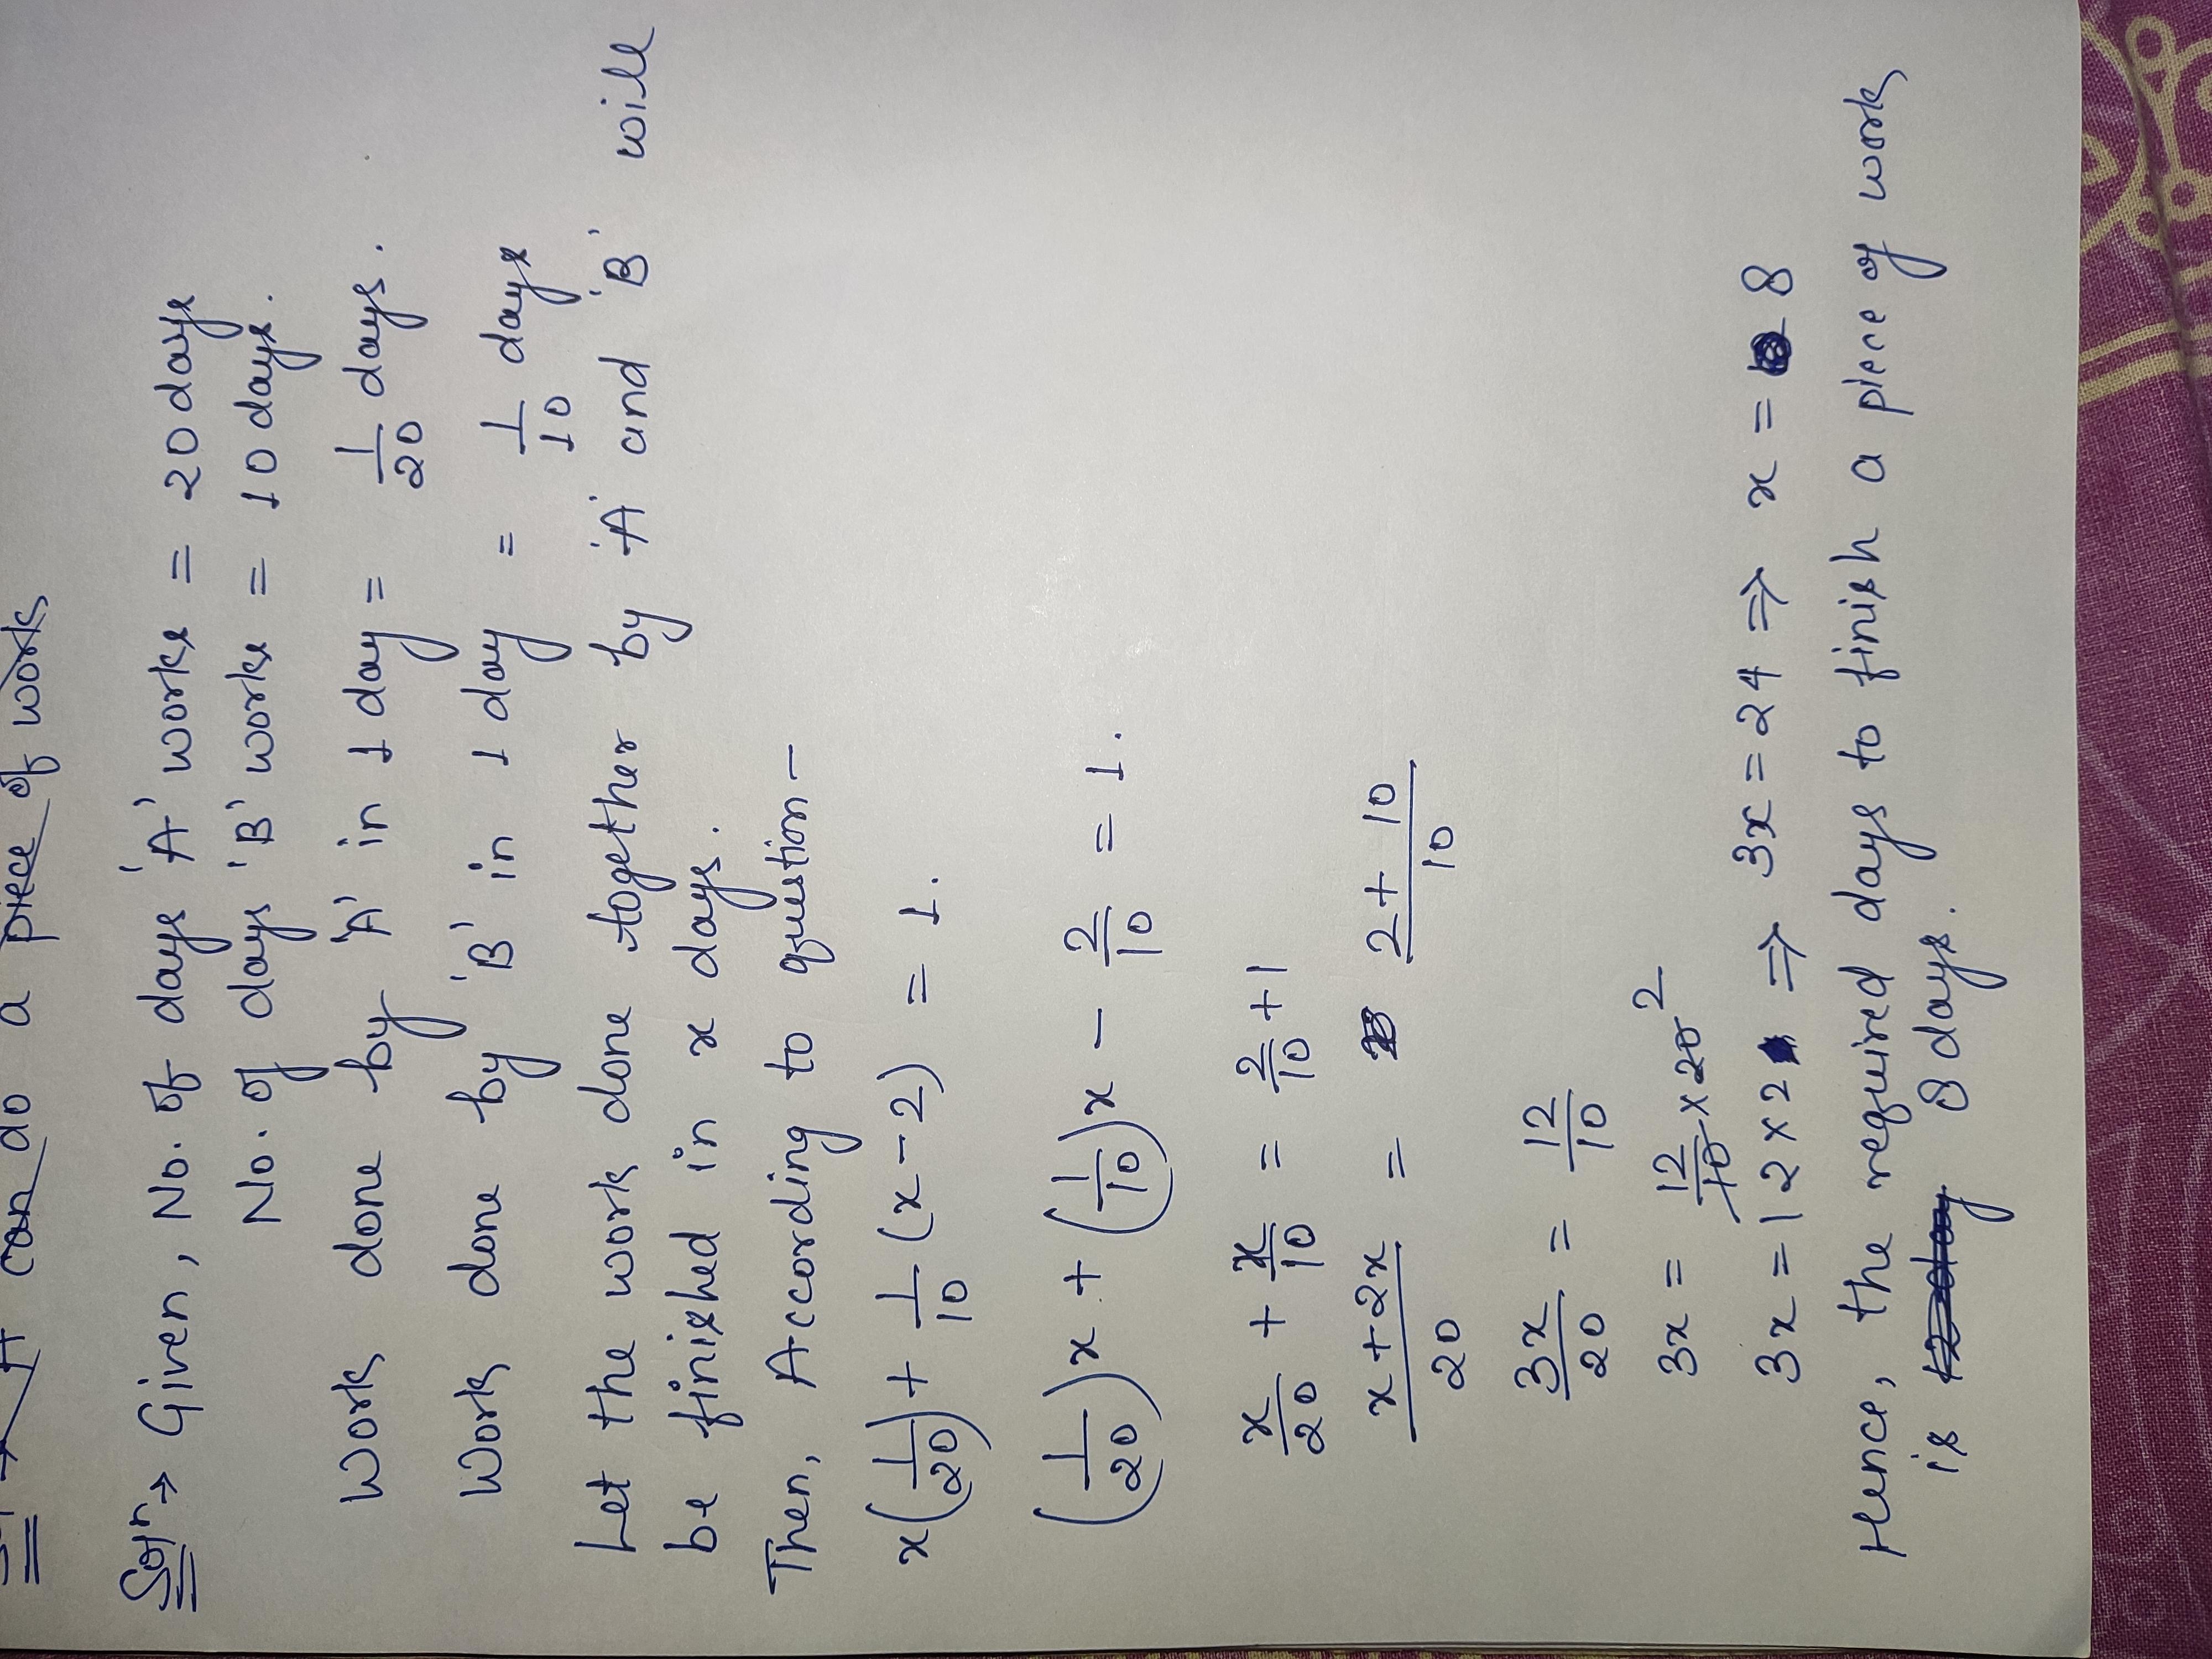 A can do a piece of work
Solⁿ→ Given, No. of days 'A' works = 20 days
No. of days 'B' works = 10 days.
Work done by 'A' in 1 day = 1/20 days.
Work done by 'B' in 1 day = 1/10 days
Let the work done together by 'A' and 'B' will
be finished in x days.
Then, According to question -
x(1/20) + 1/10 (x-2) = 1.
(1/20)x + (1/10)x - 2/10 = 1.
x/20 + x/10 = 2/10 + 1
x+2x/20 = 2+10/10
3x/20 = 12/10
3x = 12/10 × 20 2
3x = 12 × 2 ⇒ 3x = 24 ⇒ x = 8
Hence, the required days to finish a piece of work
is 8 days.